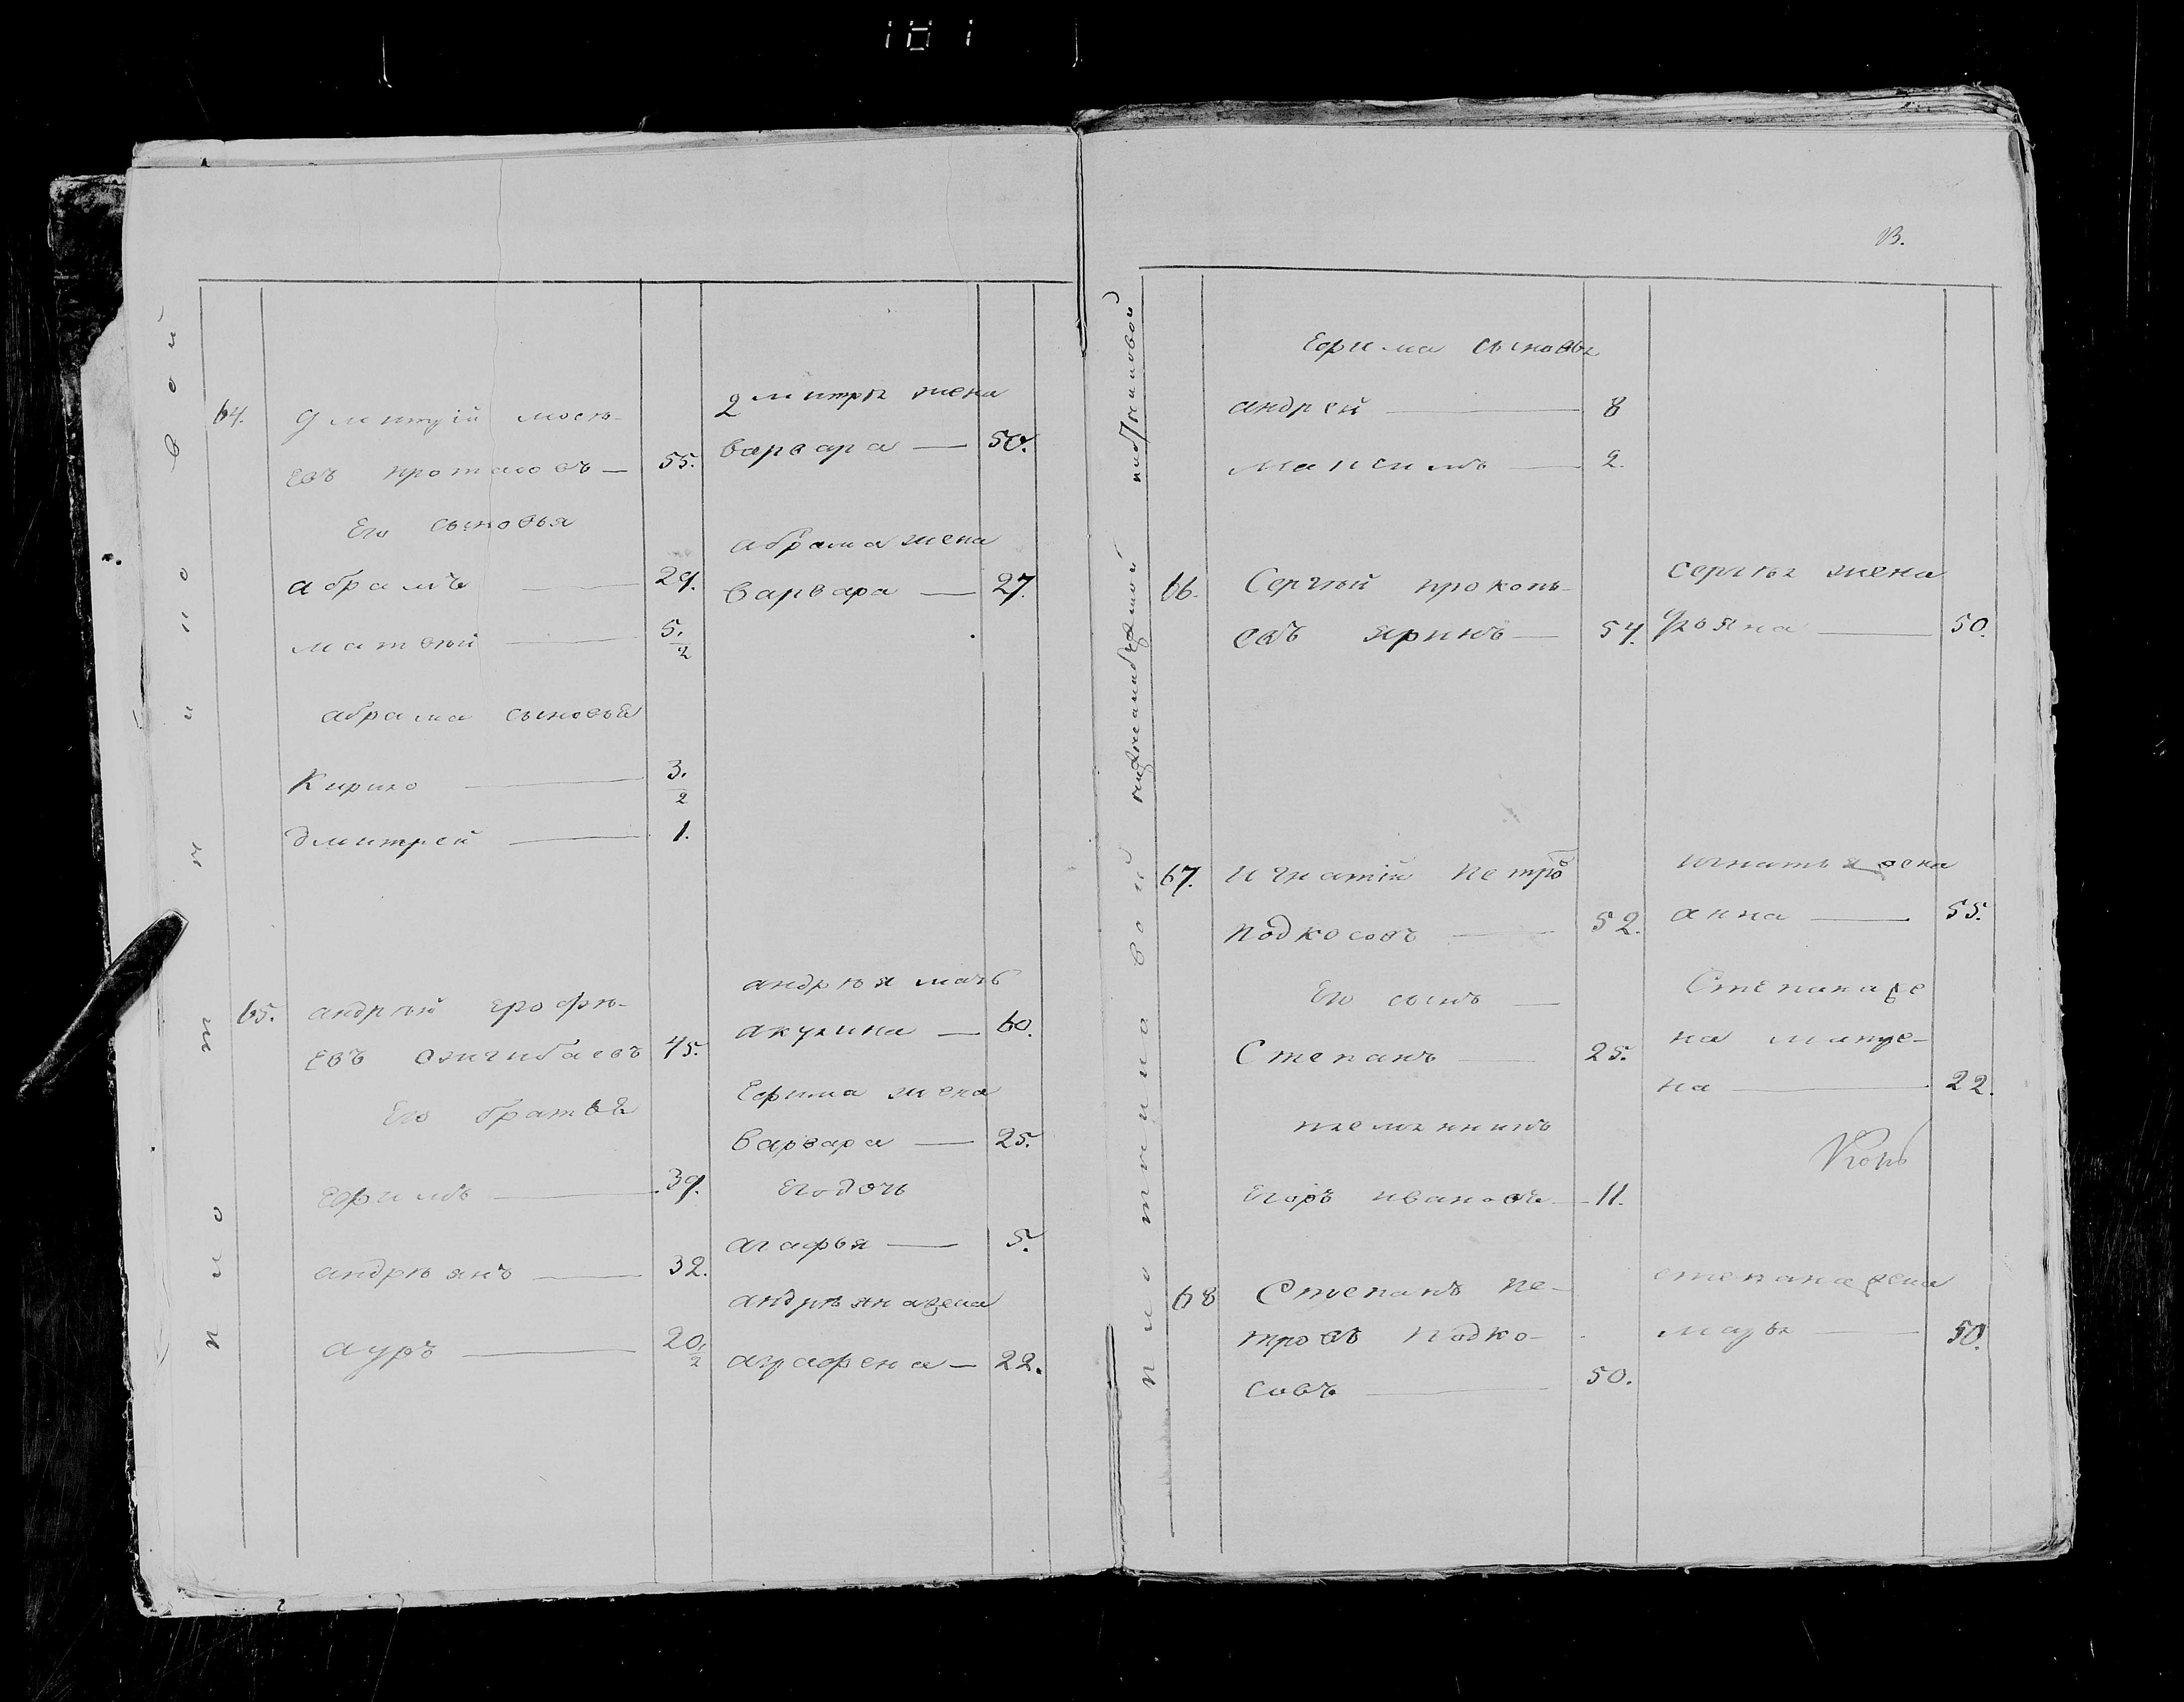 64.
Дмитрій мосѣ-
евъ протасовъ — 55.
Его сыновья
абрамъ — 29.
матвѣй — 5.½
абрама сыновья
Кирило — 3.½
дмитрей — 1.
дмитрѣ жена
варвара — 50.
абрама жена
варвара — 27.
65.
андрѣй ерофѣ-
евъ 45.
Его братья
Ефимъ — 39.
андрѣянъ — 32.
20½
андрѣя мать
акулина — 60.
Ефима жена
варвара — 25.
Его дочь
агафья — 5.
андрѣяна жена
аграфена — 22.
Ефима сыновья
андрей — 8
максимъ — 2.
66.
Сергѣй прокопь-
евъ яринъ — 54.
сергѣя жена
50.
67.
игнатій петро
подкосовъ — 52.
Его сынъ —
Степанъ — 25.
племянникъ
Егоръ ивановъ — 11.
игнатья жена
анна — 55.
Степана же
на матре-
на — 22.
68
Степанъ пе-
тровъ подко-
совъ — 50.
степана жена
50.